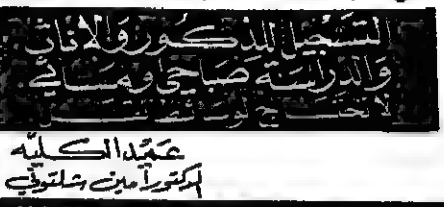 التسجيل للذكور والاناث
والدراسة صباحي ومسائي
لا تحتاج
عميد الكليه
الدكتور امين شلتوني